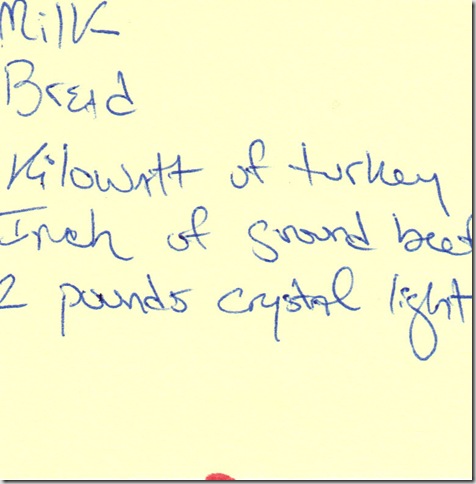 Milk
Bread
Kilowatt of turkey
Inch of ground beef
2 pounds crystal light